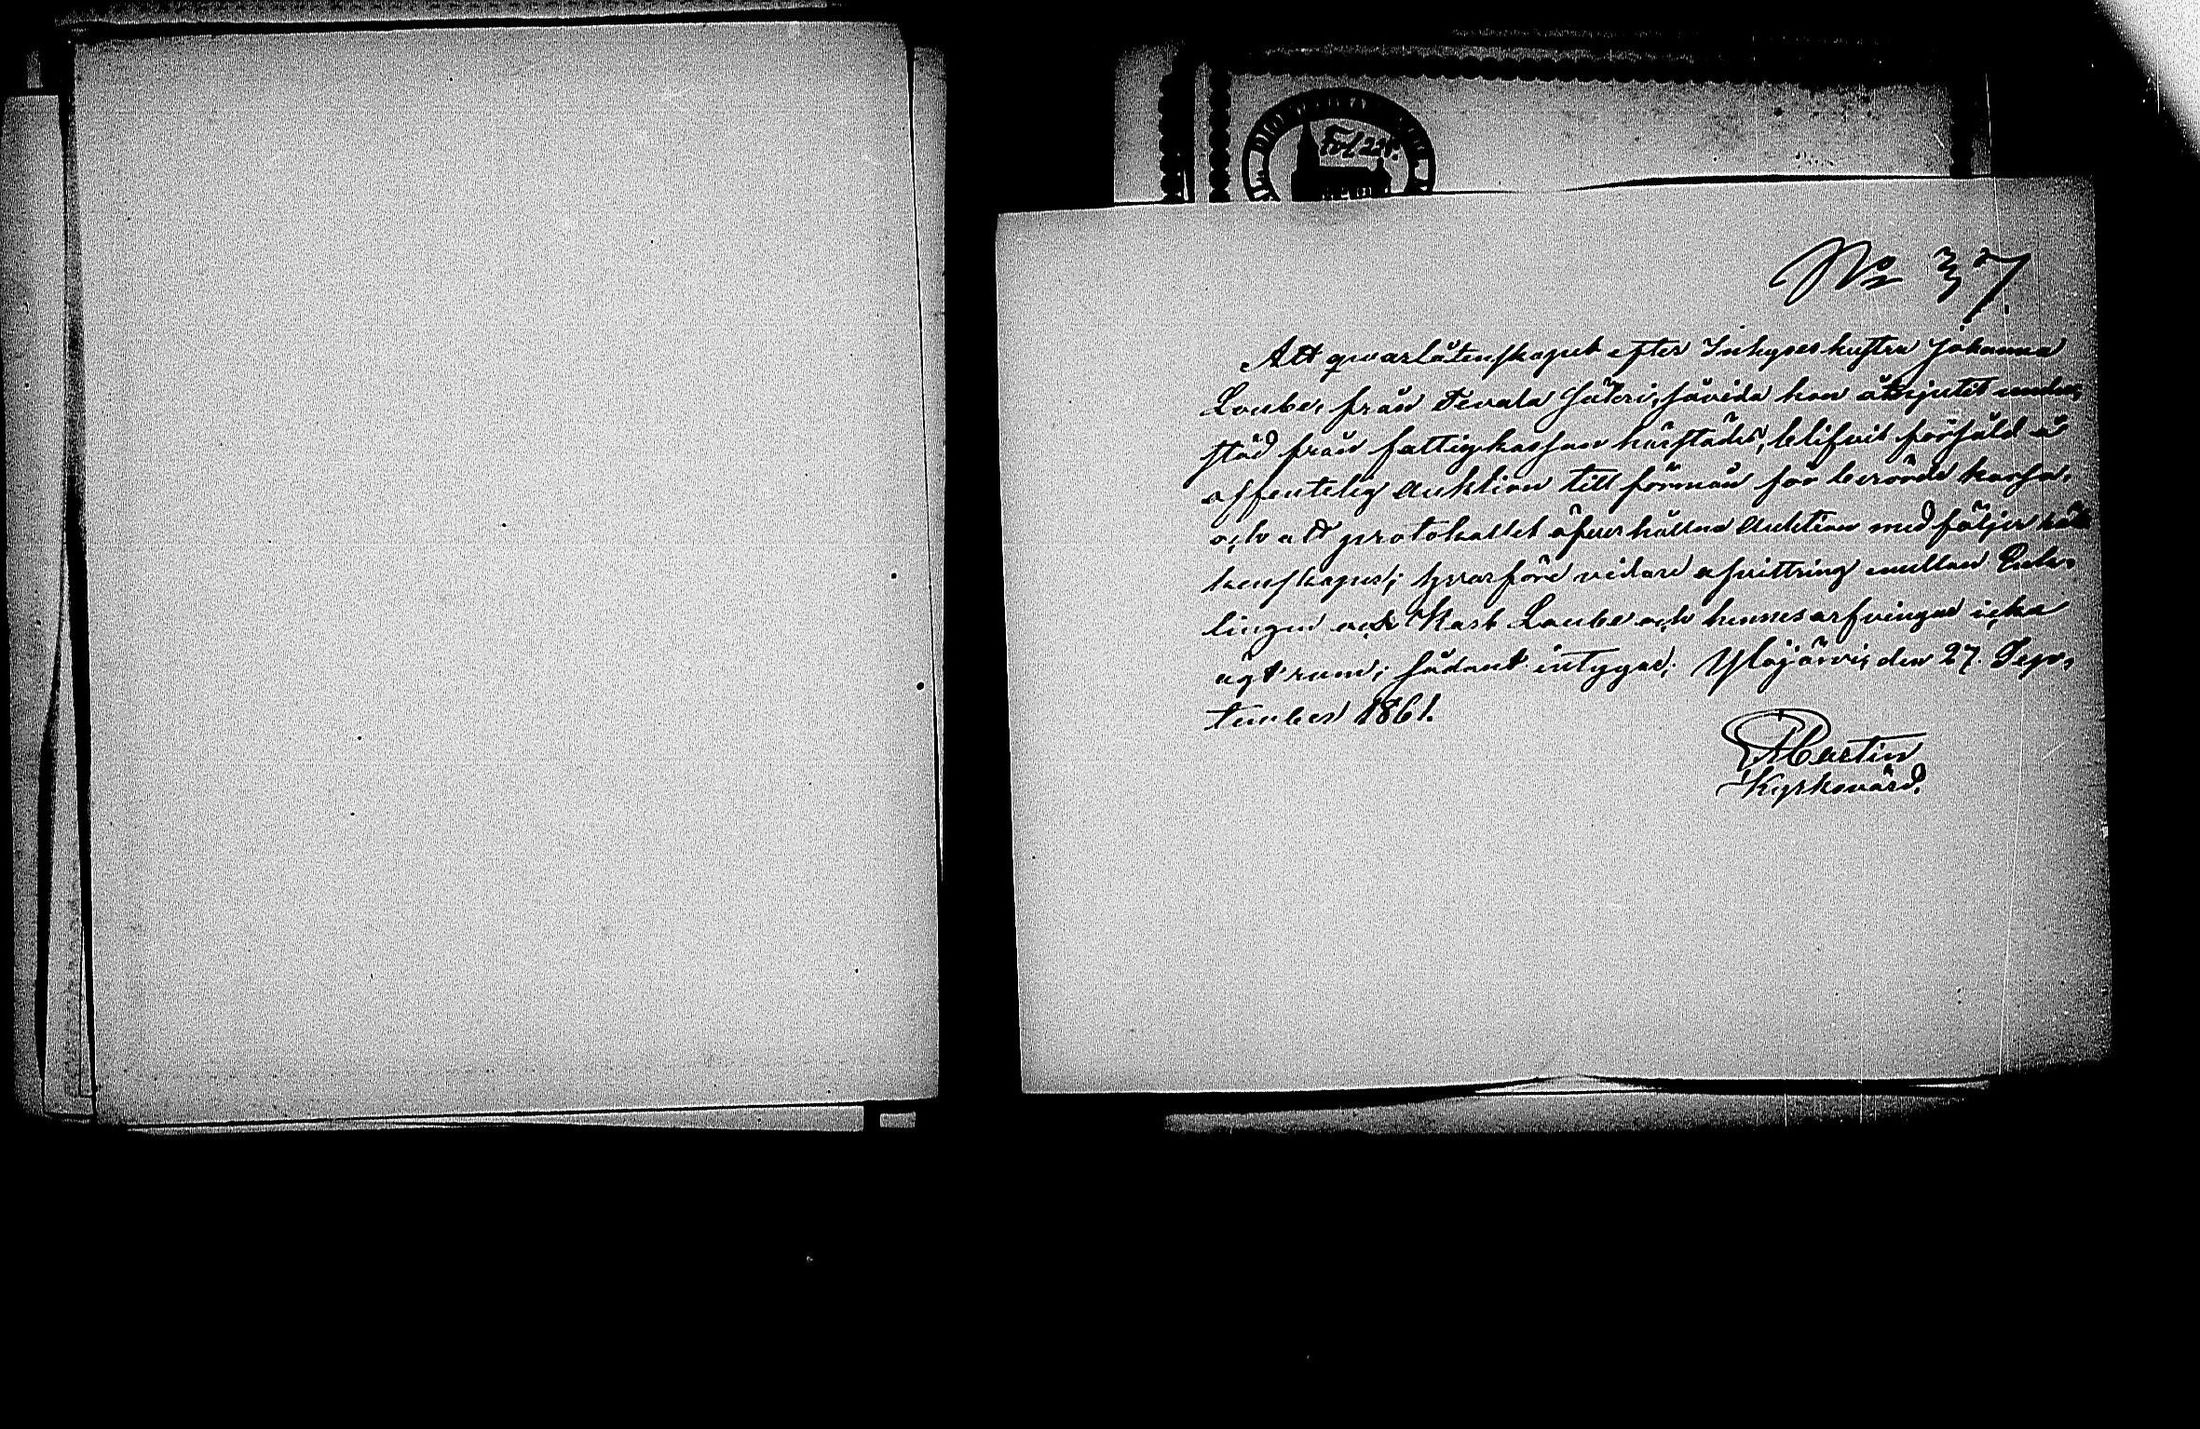 Fol 228.
No 37.
Att qwarlåtenskapet efter Inhyseshustru Johanna
Loube, från Tevala Säteri, såvida hon åtnjutit under-
stöd från fattigkassan härstädes, blifvit försåld å
offentelig Auktion till förmån för berörde kassa,
och att protokollet öfver hållna Auktion med följer räk
kenskapen; hvarföre vidare afvittring mellan Enk-
lingen och Loube och hennes arfvingar icke
ägt rum; sådant intygar; Ylöjärvi, den 27. Sep-
tember 1861.
Martin
Kyrkovärd.